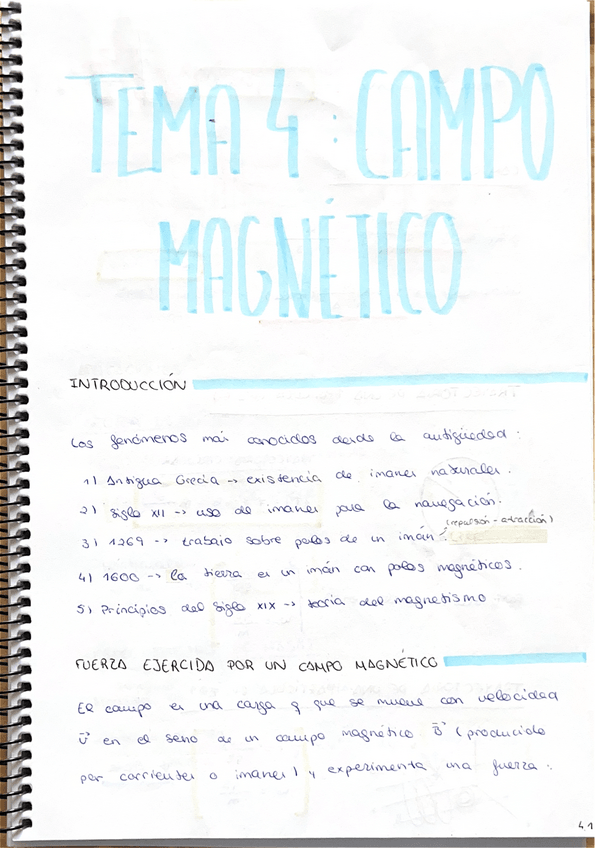 TEMA 4: CAMPO
MAGNÉTICO
INTRODUCCIÓN
Los fenómenos más conocidos desde la antigüedad:
1) Antigua Grecia → existencia de imanes naturales.
2) Siglo XII → uso de imanes para la navegación.
3) 1269 → trabajo sobre polos de un imán (repulsión - atracción)
4) 1600 → la tierra es un imán con polos magnéticos.
5) Principios del siglo XIX → teoría del magnetismo
FUERZA EJERCIDA POR UN CAMPO MAGNÉTICO
El campo es una carga q que se mueve con velocidad
v⃗ en el seno de un campo magnético B⃗ (producido
por corrientes o imanes) y experimenta una fuerza:
41